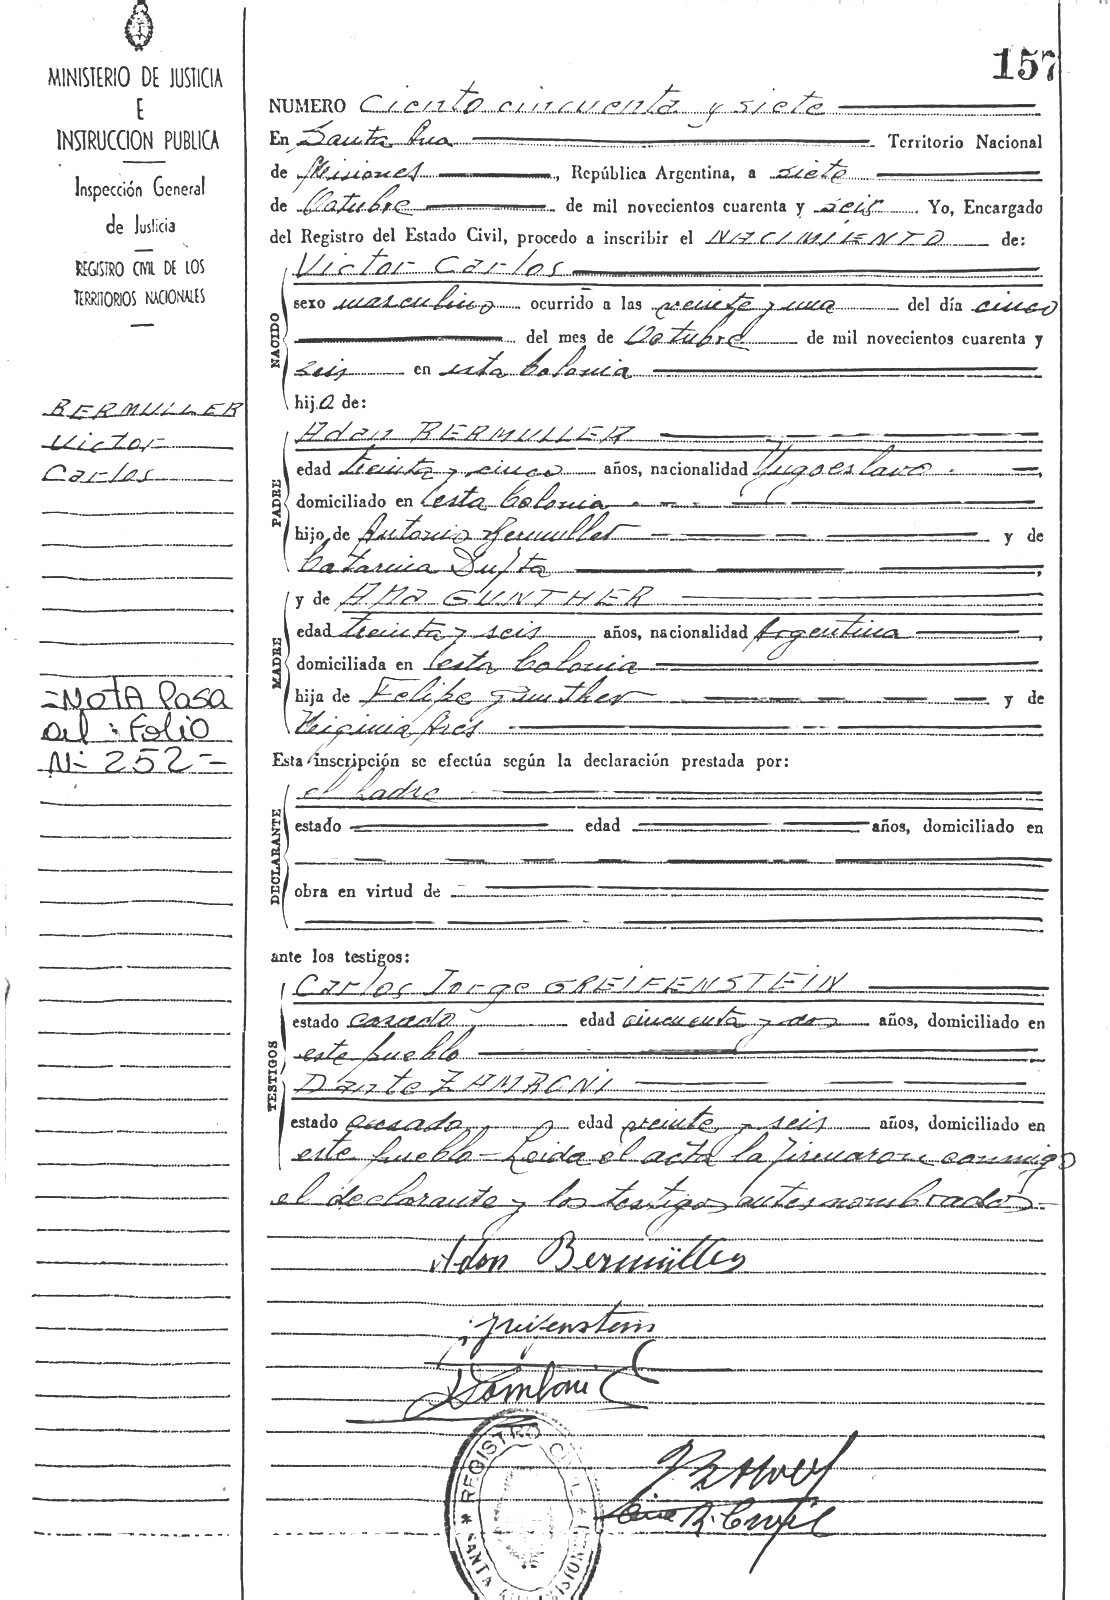 MINISTERIO DE JUSTICIA
E
INSTRUCCION PUBLICA
Inspección General
de Justicia
REGISTRO CIVIL DE LOS
TERRITORIOS NACIONALES
BERMULLER
Victor
Carlos
=NOTA Pasa
Del : Folio
Nº 252=
157
NUMERO Ciento cincuenta y siete
En Santa Ana Territorio Nacional
de Misiones, República Argentina, a siete
de Octubre de mil novecientos cuarenta y seis. Yo, Encargado
del Registro del Estado Civil, procedo a inscribir el NACIMIENTO de:
NACIDO
Victor Carlos
sexo masculino ocurrido a las veinte y una del día cinco
del mes de Octubre de mil novecientos cuarenta y
seis en esta Colonia
hijo de:
PADRE
Adan BERMULLER
edad treinta y cinco años, nacionalidad Yugoeslavo
domiciliado en esta Colonia
hijo de Antonio Bermuller y de
Catarina
MADRE
y de Ana GUNTHER
edad treinta y seis años, nacionalidad Argentina,
domiciliada en esta Colonia
hija de Felipe Gunther y de
Virginia
Esta inscripción se efectúa según la declaración prestada por:
DECLARANTE
el Padre
estado edad años, domiciliado en
obra en virtud de
ante los testigos:
TESTIGOS
Carlos Jorge GREIFENSTEIN
estado casado edad cincuenta y dos años, domiciliado en
este pueblo
Dante ZAMBONI
estado casado edad veinte y seis años, domiciliado en
este pueblo - Leida el acta la firmaron conmigo
el declarante y los testigos antes nombrados -
Adan Bermüller
Greifenstein
Zamboni
REGISTRO CIVIL
SANTA ANA MISIONES